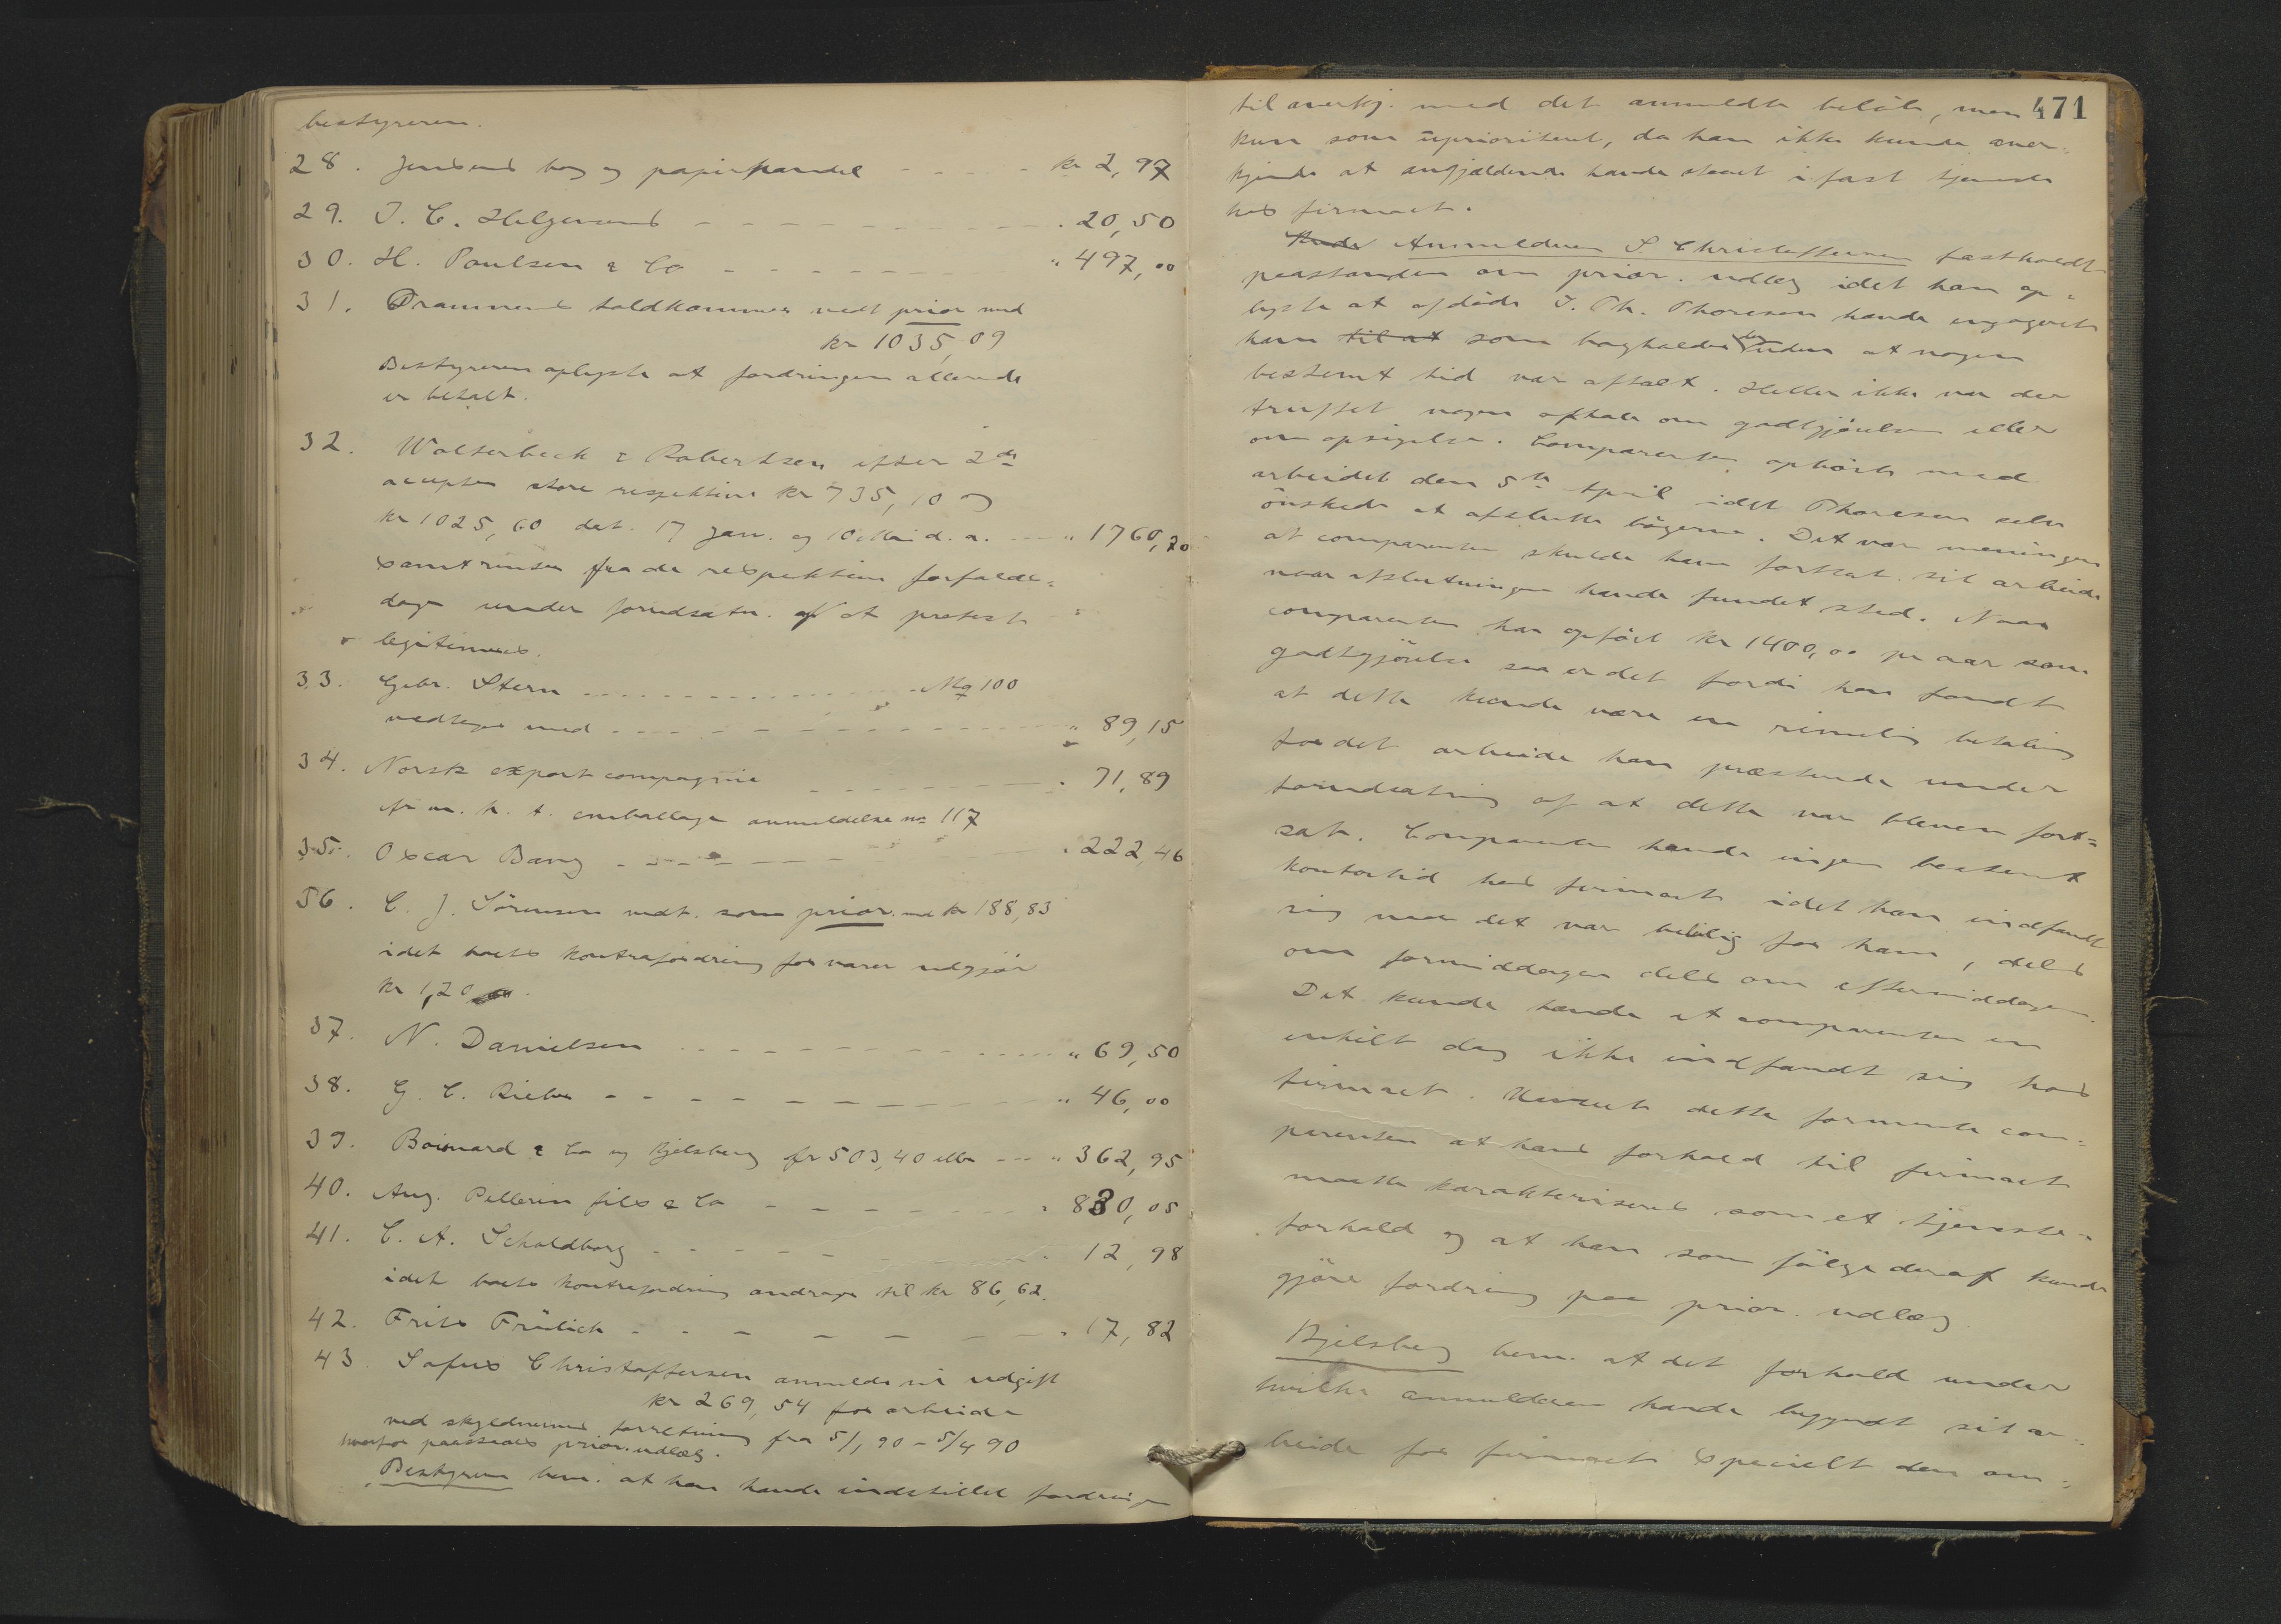 bestyreren.
28. Jensens bog og papirhandel - - - - - kr 2,97
29. J. C. Helgesens - - - - - - - - - " 20,50
30. H. Poulsen & Co - - - - - - - - " 497,00
31. Trommens toldkammer vedt prior med
kr 1035,09
Bestyreren oplyste at fordringen allerede
er betalt.
32. Wolterbeck & Robertsen efter 2de
accepter store respektive kr 735,10 og
kr 1025,60 dat. 17 Jan. og 10 Mai d. a. - - - " 1760,70
samt renter fra de respektive forfalds-
dage under forudsætn. af at protest
legitimeres.
33. Gebr. Stern - - - - - - - - - Mq 100
vedtages med - - - - - - - - - - - " 89,15
34. Norsk export compagnie - - - - - - " 71,89
m. h. t. emballage anmeldelse no 117
35. Oscar Bang - - - - - - - " 222,46
36. C. J. Sörensen vedt. som prior. med kr 188,83
idet boets kontrafordring for varer udgjör
kr 1,20
37. N. Danielsen - - - - - - - - - - - " 69,50
38. G. C. Rieber - - - - - - - - - " 46,00
39. Boinard & Co og Kjelsberg fr 503,40 eller - - - " 362,95
40. Aug. Pellerin fils & Co - - - - - - - " 830,05
41. C. A. Scholdborg - - - - - - - - " 12,98
idet boets kontrafordring andrager til kr 86,62.
42. Frits Frölich - - - - - - - - " 17,82
43. Sofus Christoffersen anmeldt sin udgift
kr 269,54 for arbeide
ved skyldnernes forretning fra 5/1 90 – 5/4 90
hvorfor paastaaes prior. udlæg.
Bestyreren bem. at han havde indstillet fordringen
471
til anerkj. med det anmeldte belöb, men
kun som uprioriteret, da han ikke kunde aner-
kjende at angjældende havde staaet i fast tjeneste
hos firmaet.
Anmelderen S. Christoffersen fastholdt
paastanden om prior. udlæg idet han op-
lyste at afdöde J. Th. Thoresen havde engageret
ham til at som bogholder uden at nogen
bestemt tid var aftalt. Heller ikke var der
truffet nogen aftale om godtgjörelsen eller
om opsigelse. Comparenten ophörte med
arbeidet den 5te April idet Thoresen selv
önskede at afslutte bögerne. Det var meningen
at comparenten skulde have fortsat sit arbeide
naar afslutningen havde fundet sted. Naar
comparenten har opfört kr 1400,00 pr aar som
godtgjörelse saa er det fordi han fandt
at dette kunde være en rimelig betaling
for det arbeide han præsterede under
forudsætning af at dette var bleven fort-
sat. Comparenten havde ingen bestemt
kontortid hos firmaet idet han indfandt
sig naar det var beleilig for ham, dels
om formiddagen dels om eftermiddagen.
Det kunde hænde at comparenten en
enkelt dag ikke indfandt sig hos
firmaet. Uanseet dette formente com-
parenten at hans forhold til firmaet
maatte karakteriseres som et tjeneste-
forhold og at han som fölge deraf kunde
gjöre fordring paa prior. udlæg.
Kjelsberg bem. at det forhold under
hvilke anmelderen havde begyndt sit ar-
beide for firmaet specielt den om-